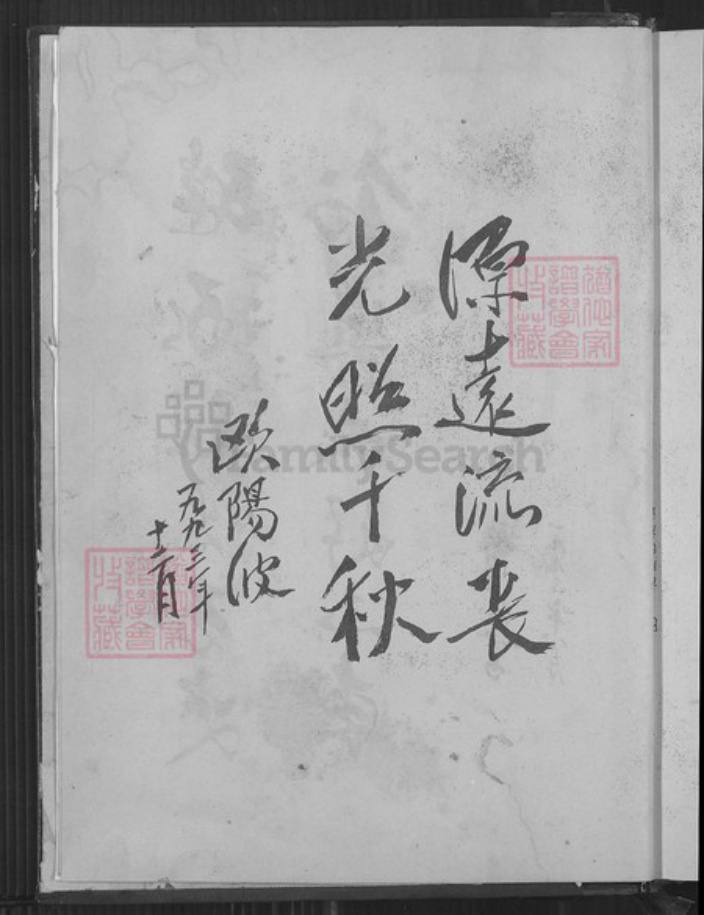 源遠流長
光照千秋
歐陽波
一九九三年
十二月
猶他家譜學會特藏
猶他家譜學會特藏
FamilySearch